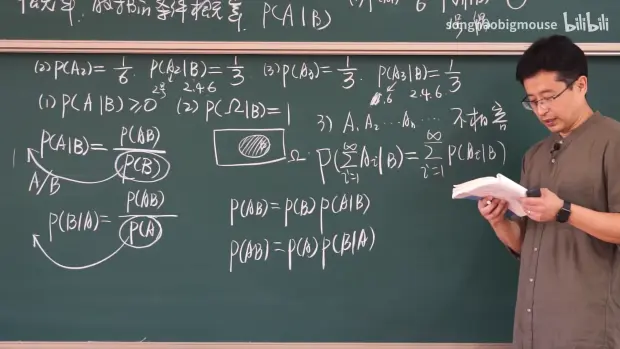 条件概率 P(A|B)
songhaobigmouse bilibili
(2) P(A₂)= 1/6. P(A₂|B)= 1/3 (3) P(A₃)= 1/3. P(A₃|B)= 1/3
2.4.6 .6 2.4.6
(1) P(A|B)≥0 (2) P(Ω|B)=1
3) A₁ A₂ ... Aₙ ... 不相容
P(A|B)= P(AB)/P(B)
Ω
P(∑_{i=1}^{∞} Aᵢ|B)=∑_{i=1}^{∞} P(Aᵢ|B)
A/B
P(B|A)= P(AB)/P(A)
P(AB)=P(B)P(A|B)
P(AB)=P(A)P(B|A)